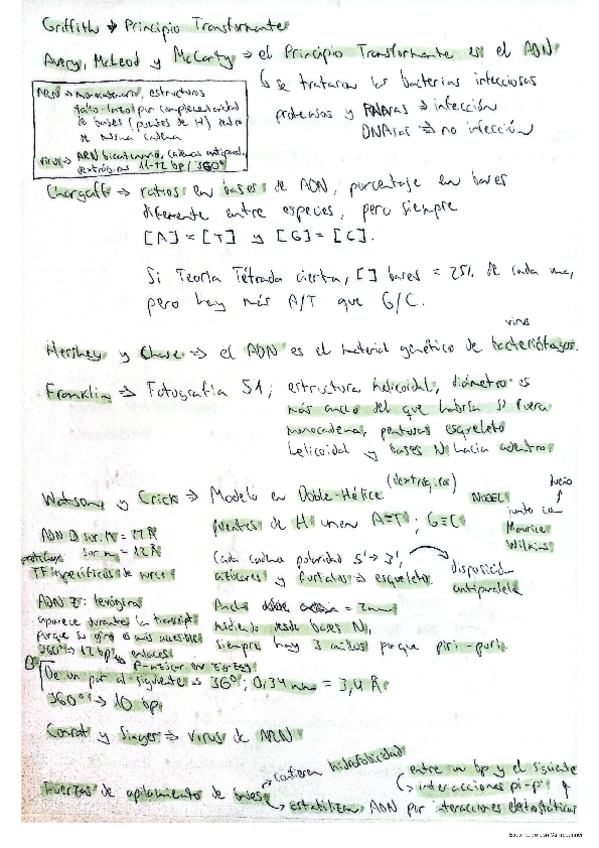 Griffith → Principio Transformante
Avery, McLeod y McCarty ⇒ el Principio Transformante es el ADN
↳ se trataron las bacterias infecciosas
proteasas y RNAsas ⇒ infección
DNAsas ⇒ no infección
ARN → monocatenario, estructuras
tallo-lazo por complementariedad
de bases (puentes de H) dentro
de misma cadena
virus → ARN bicatenario, cadenas antiparal.
dextrógiras 11-12 bp / 360º
Chargaff ⇒ ratios en bases de ADN, porcentaje en bases
diferente entre especies, pero siempre
[A] = [T] y [G] = [C].
Si Teoría Tétrada cierta, [] bases = 25% de cada una,
pero hay más A/T que G/C.
virus
Hershey y Chase ⇒ el ADN es el material genético de bacteriófagos.
Franklin ⇒ Fotografía 51; estructura helicoidal, diámetro es
más ancho del que habría si fuera
monocadena, pentosas esqueleto
helicoidal y bases N hacia adentro
Watson y Crick ⇒ Modelo en Doble-Hélice (dextrógiro)
NOBEL junto con
Maurice
Wilkins
puentes de H unen A=T; G≡C
ADN B sur. M = 22 Å
sur. m = 12 Å
TF específicos de surcos
Cada cadena polaridad 5' → 3',
azúcares y fosfatos ⇒ esqueleto.
disposición
antiparalela
ADN Z: levógira
aparece durante la transcript.
porque su giro es más accesible
360º → 12 bp, enlaces
P-azúcar en zig-zag
Ancho doble = 2nm
midiendo desde bases N,
siempre hay 3 anillos porque piri-puri.
B De un par al siguiente es 36º; 0,34 nm = 3,4 Å
360º → 10 bp
Conrat y Singer ⇒ virus de ARN
Fuerzas de apilamiento de bases
→ confieren hidrofobicidad
↳ estabilizan ADN por interacciones electrostáticas
entre un bp y el siguiente
↳ interacciones pi-pi